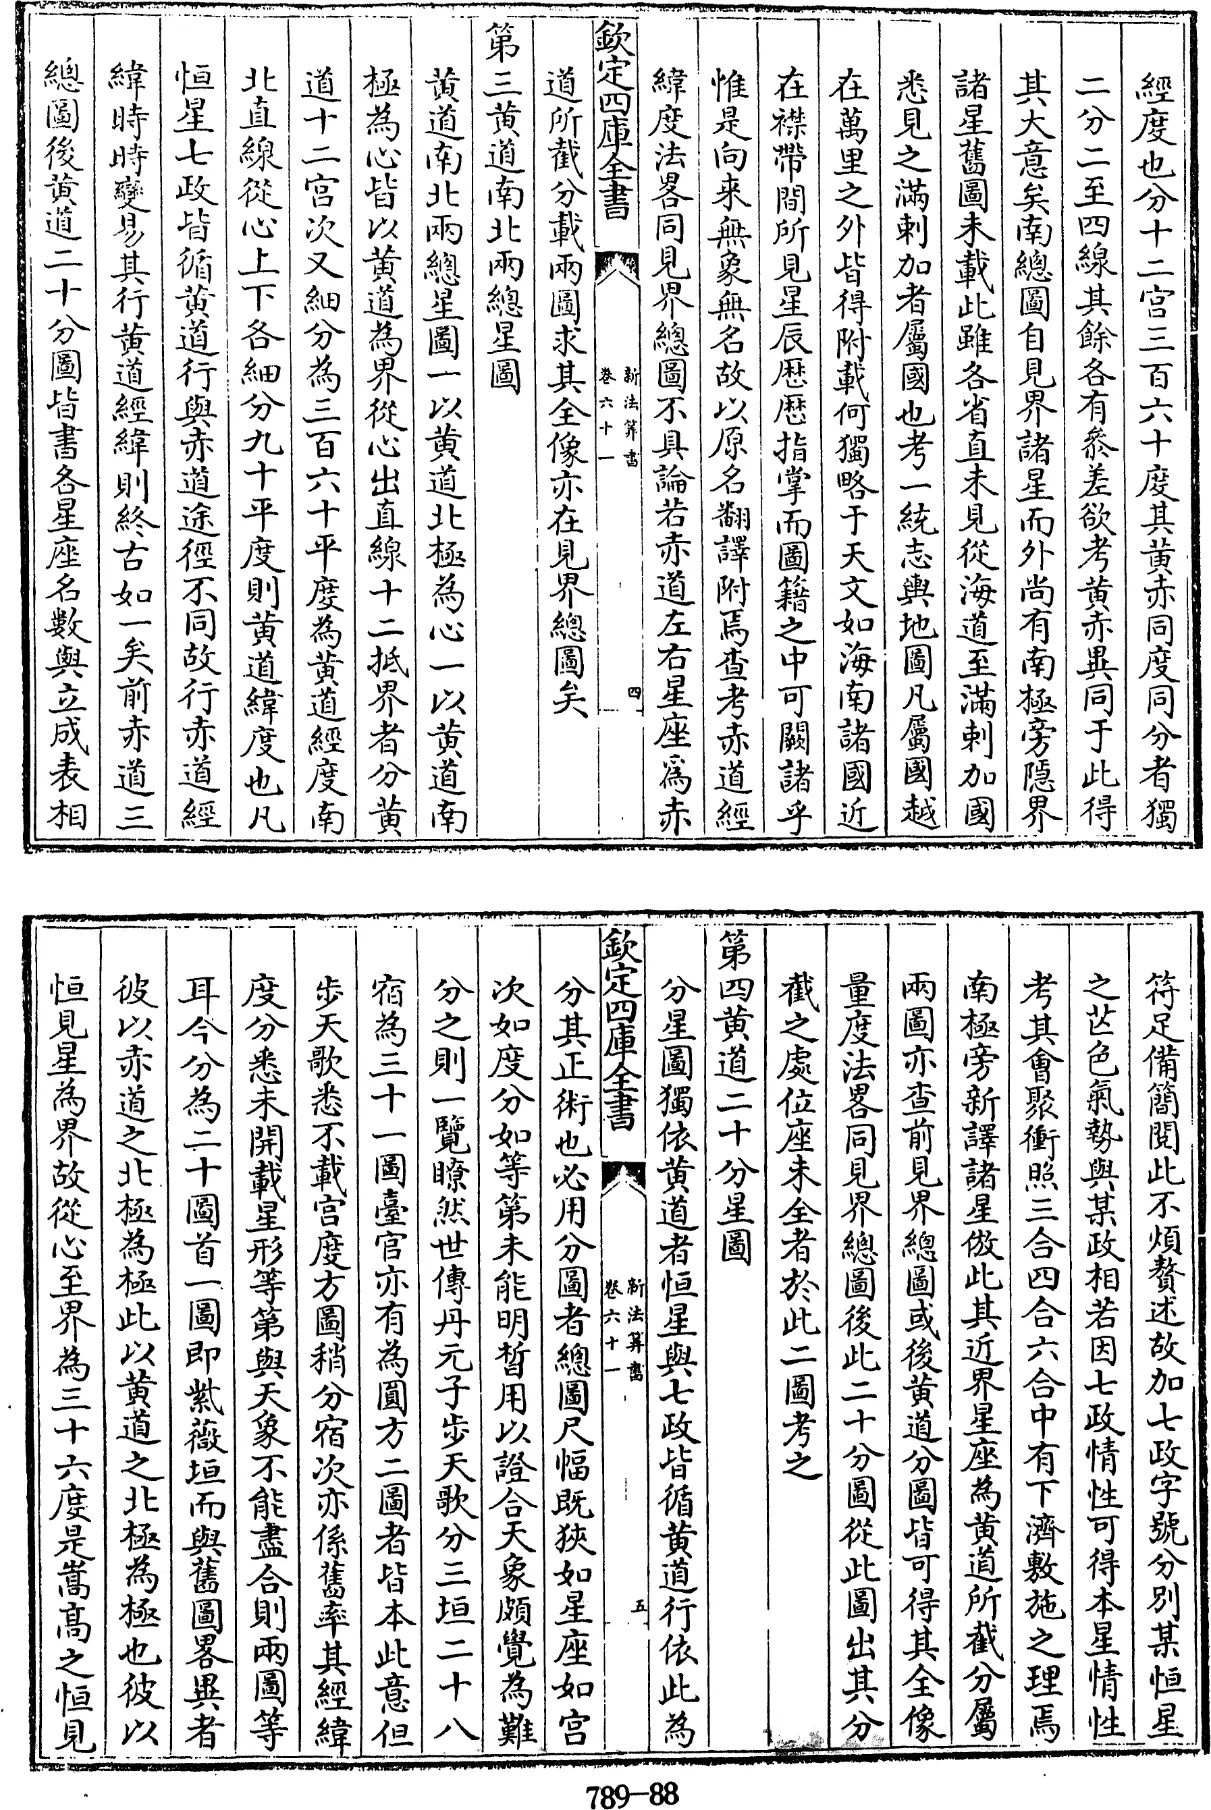 經度也分十二宫三百六十度其黄赤同度同分者獨
二分二至四線其餘各有叅差欲考黄赤異同于此得
其大意矣南總圖自見界諸星而外尚有南極旁隱界
諸星舊圖未載此雖各省直未見從海道至滿剌加國
悉見之滿剌加者屬國也考一統志輿地圖凡屬國越
在萬里之外皆得附載何獨略于天文如海南諸國近
在襟帶間所見星辰歴歴指掌而圖籍之中可闕諸乎
惟是向来無象無名故以原名翻譯附焉查考赤道經
緯度法畧同見界總圖不具論若赤道左右星座爲赤
欽定四庫全書
新法算書
卷六十一
四
道所截分載兩圖求其全像亦在見界總圖矣
第三黄道南北兩總星圖
黄道南北兩總星圖一以黄道北極為心一以黄道南
極為心皆以黄道為界從心出直線十二抵界者分黄
道十二宫次又細分為三百六十平度為黄道經度南
北直線從心上下各細分九十平度則黄道緯度也凡
恒星七政皆循黄道行與赤道途徑不同故行赤道經
緯時時變易其行黄道經緯則終古如一矣前赤道三
總圖後黄道二十分圖皆書各星座名數與立成表相
符足備簡閲此不煩贅述故加七政字號分别某恒星
之芒色氣勢與某政相若因七政情性可得本星情性
考其會聚衝照三合四合六合中有下濟敷施之理焉
南極旁新譯諸星倣此其近界星座為黄道所截分屬
兩圖亦查前見界總圖或後黄道分圖皆可得其全像
量度法畧同見界總圖後此二十分圖從此圖出其分
截之處位座未全者於此二圖考之
第四黄道二十分星圖
分星圖獨依黄道者恒星與七政皆循黄道行依此為
欽定四庫全書
新法算書
卷六十一
五
分其正術也必用分圖者總圖尺幅既狹如星座如宫
次如度分如等第未能明晳用以證合天象頗覺為難
分之則一覽瞭然世傳丹元子步天歌分三垣二十八
宿為三十一圖臺官亦有為圓方二圖者皆本此意但
步天歌悉不載宫度方圖稍分宿次亦係舊率其經緯
度分悉未開載星形等第與天象不能盡合則兩圖等
耳今分為二十圖首一圖即紫薇垣而與舊圖畧異者
彼以赤道之北極為極此以黄道之北極為極也彼以
恒見星為界故從心至界為三十六度是嵩高之恒見
789-88